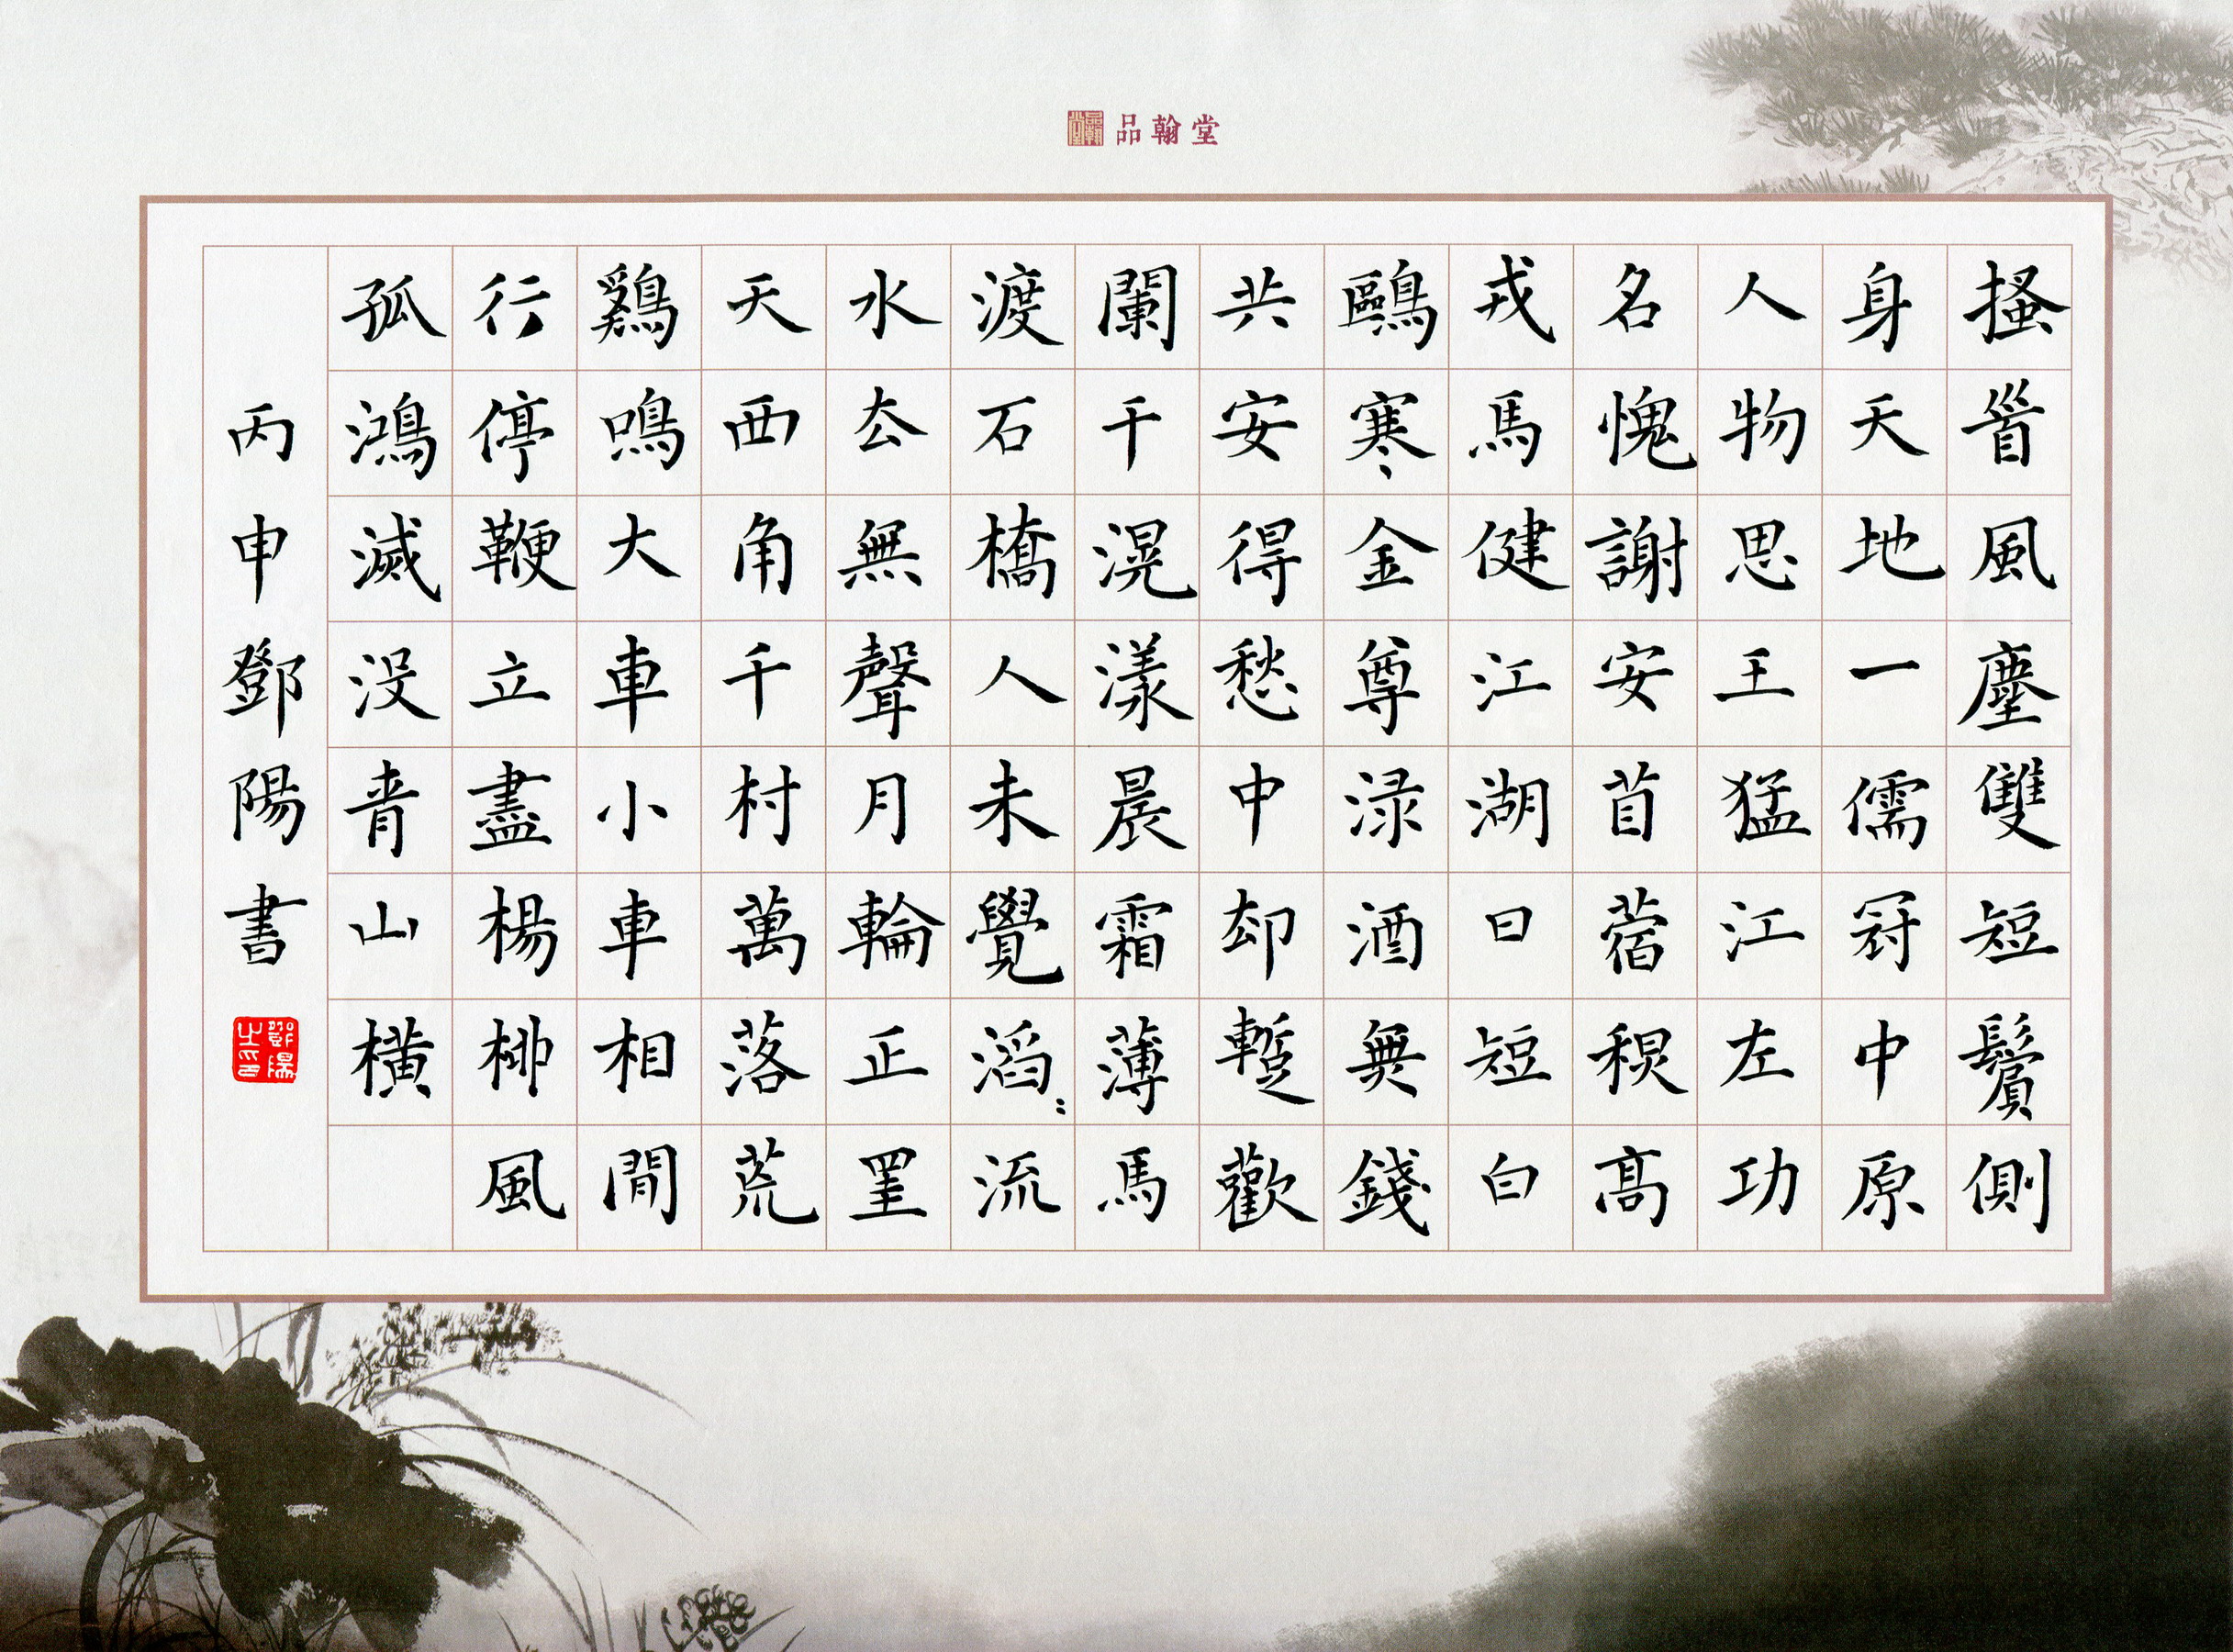 品翰堂
搔首風塵雙短鬢側
身天地一儒冠中原
人物思王猛江左功
名愧謝安苜蓿秋高
戎馬健江湖日短白
鷗寒金尊淥酒無錢
共安得愁中却暫歡
闌干滉漾晨霜薄馬
渡石橋人未覺滔〻流
水去無聲月輪正罣
天西角千村萬落荒
鷄鳴大車小車相間
行停鞭立盡楊柳風
孤鴻滅没青山橫
丙申鄧陽書
鄧陽之印